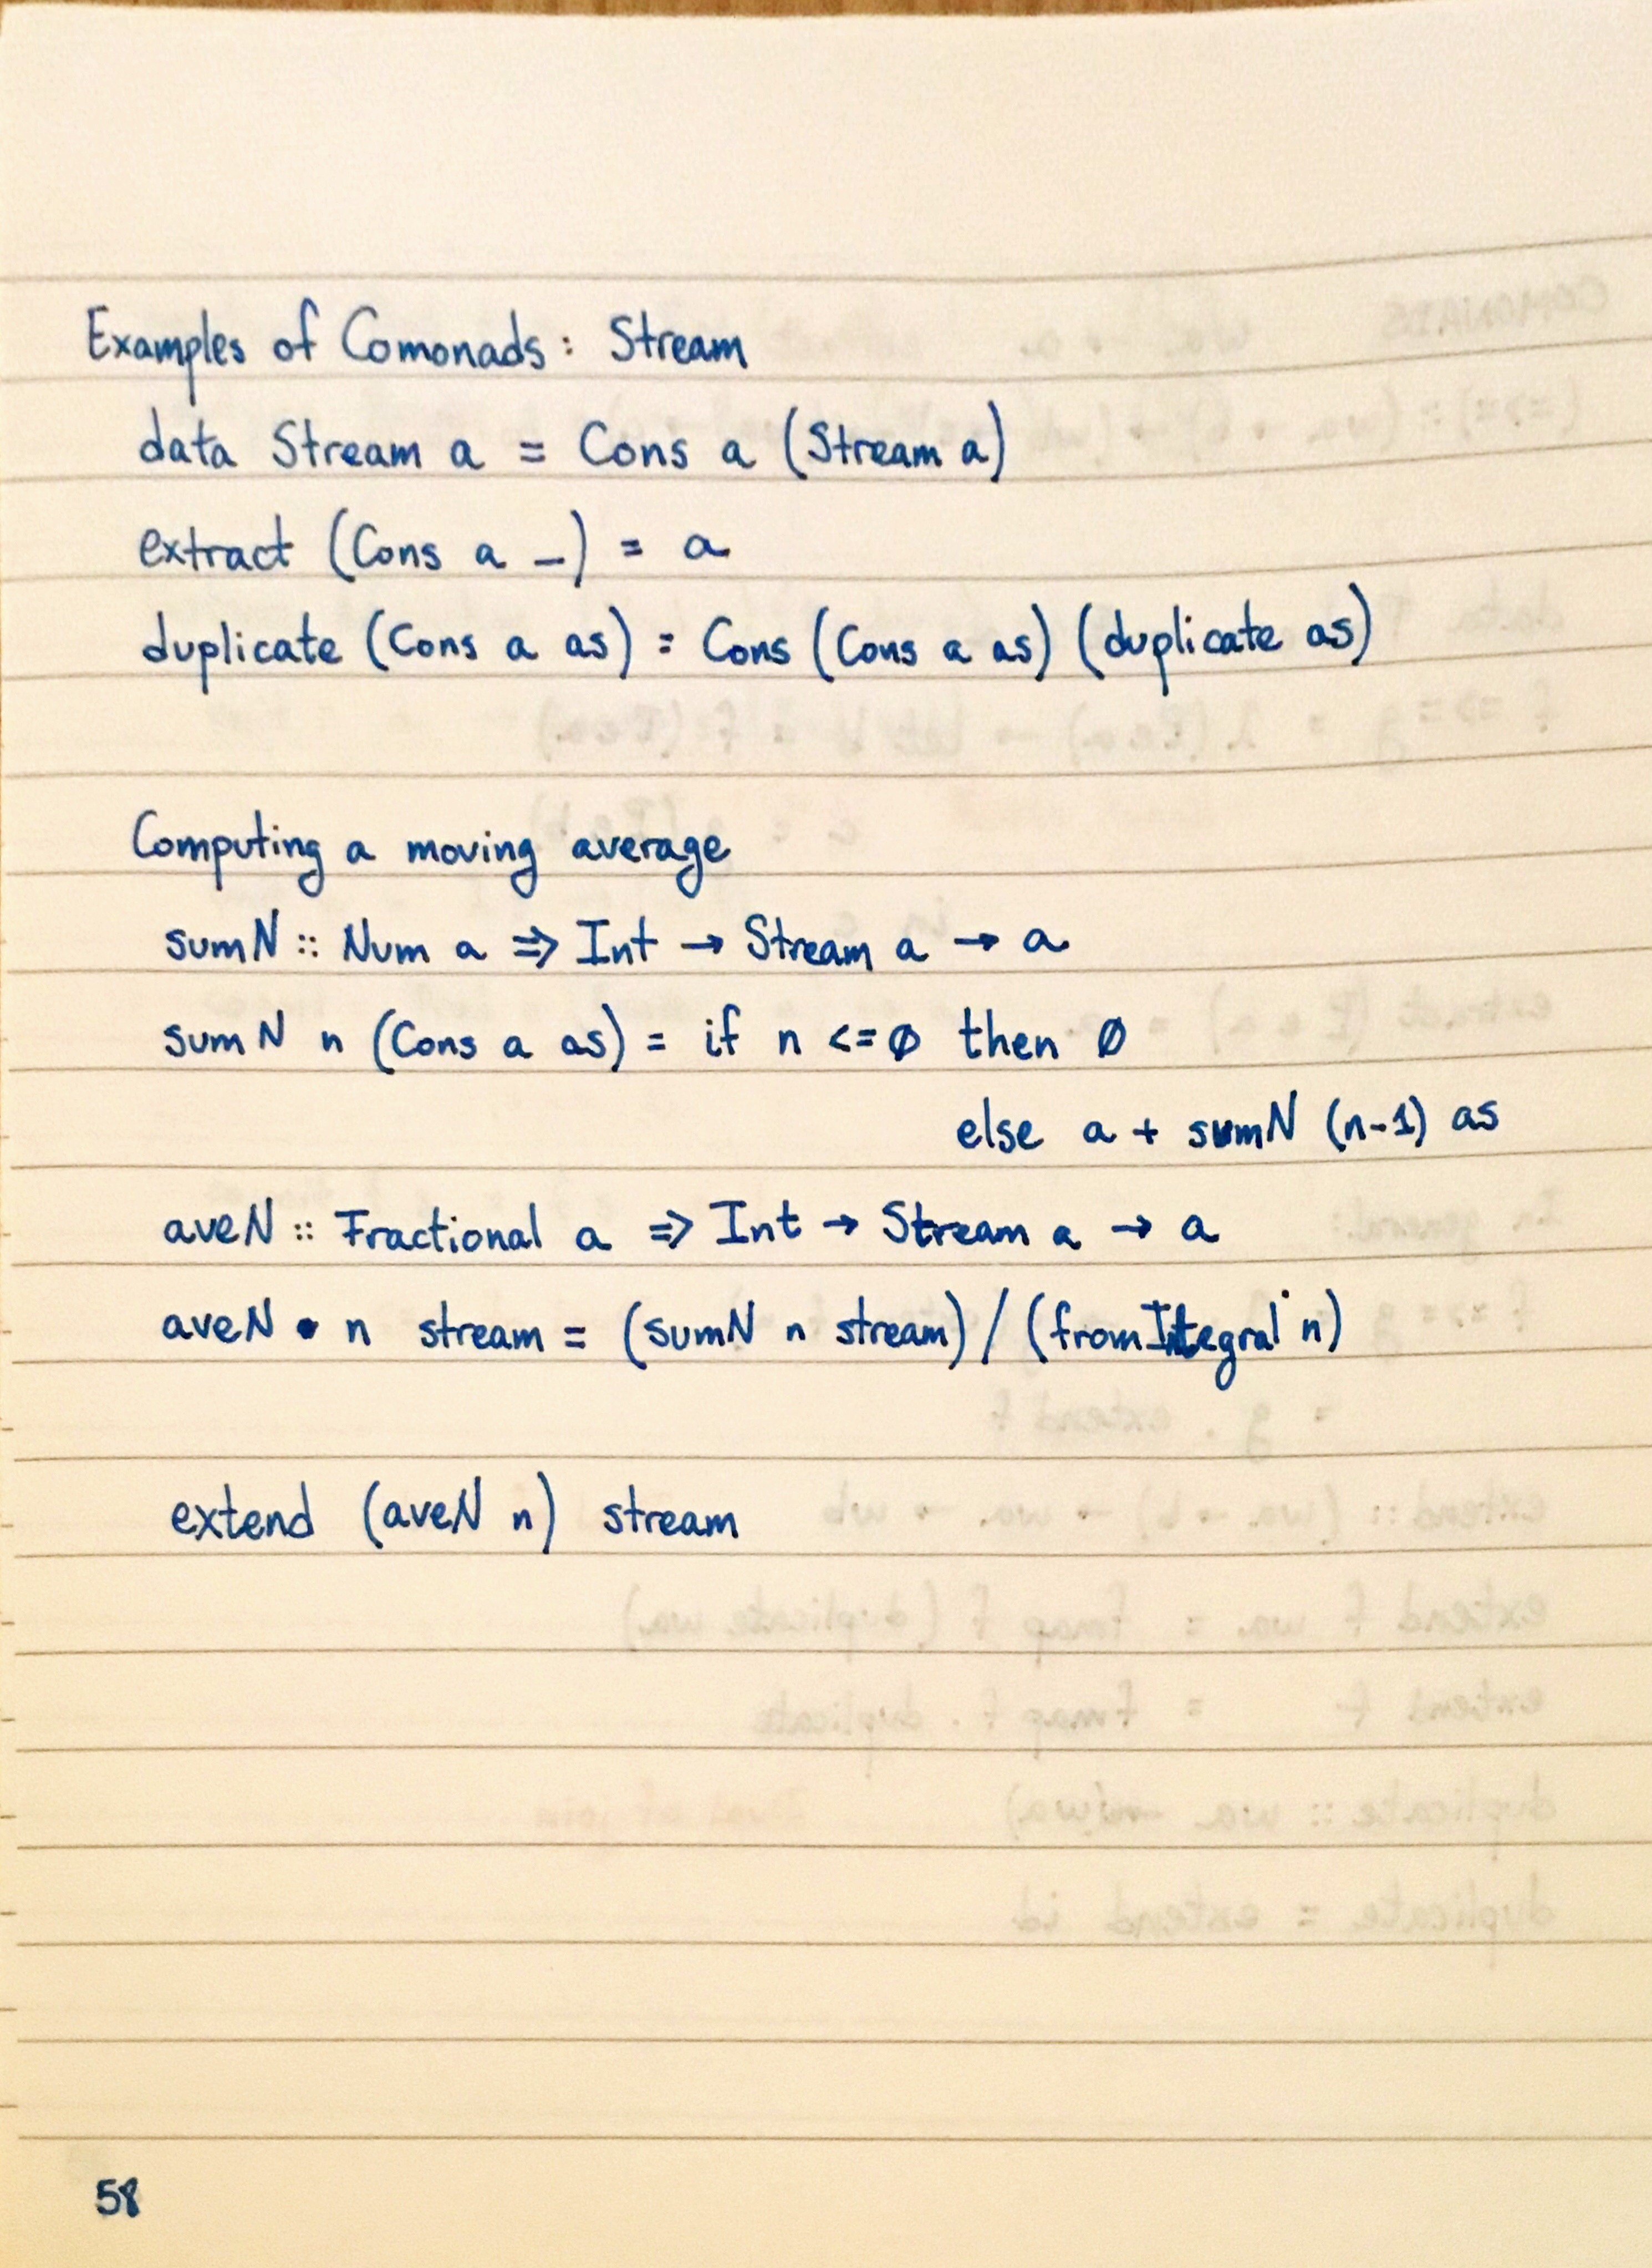 Examples of Comonads: Stream
data Stream a = Cons a (Stream a)
extract (Cons a _) = a
duplicate (Cons a as) = Cons (Cons a as) (duplicate as)
Computing a moving average
sumN :: Num a => Int → Stream a → a
sumN n (Cons a as) = if n <= 0 then 0
else a + sumN (n-1) as
aveN :: Fractional a => Int → Stream a → a
aveN n stream = (sumN n stream) / (fromIntegral n)
extend (aveN n) stream
58